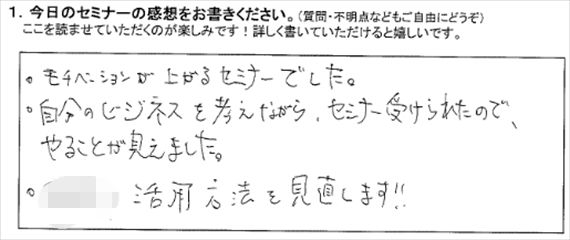 1. 今日のセミナーの感想をお書きください。（質問・不明点などもご自由にどうぞ）
ここを読ませていただくのが楽しみです！詳しく書いていただけると嬉しいです。
。モチベーションが上がるセミナーでした。
。自分のビジネスを考えながら、セミナー受けられたので、
やることが見えました。
。活用方法を見直します!!